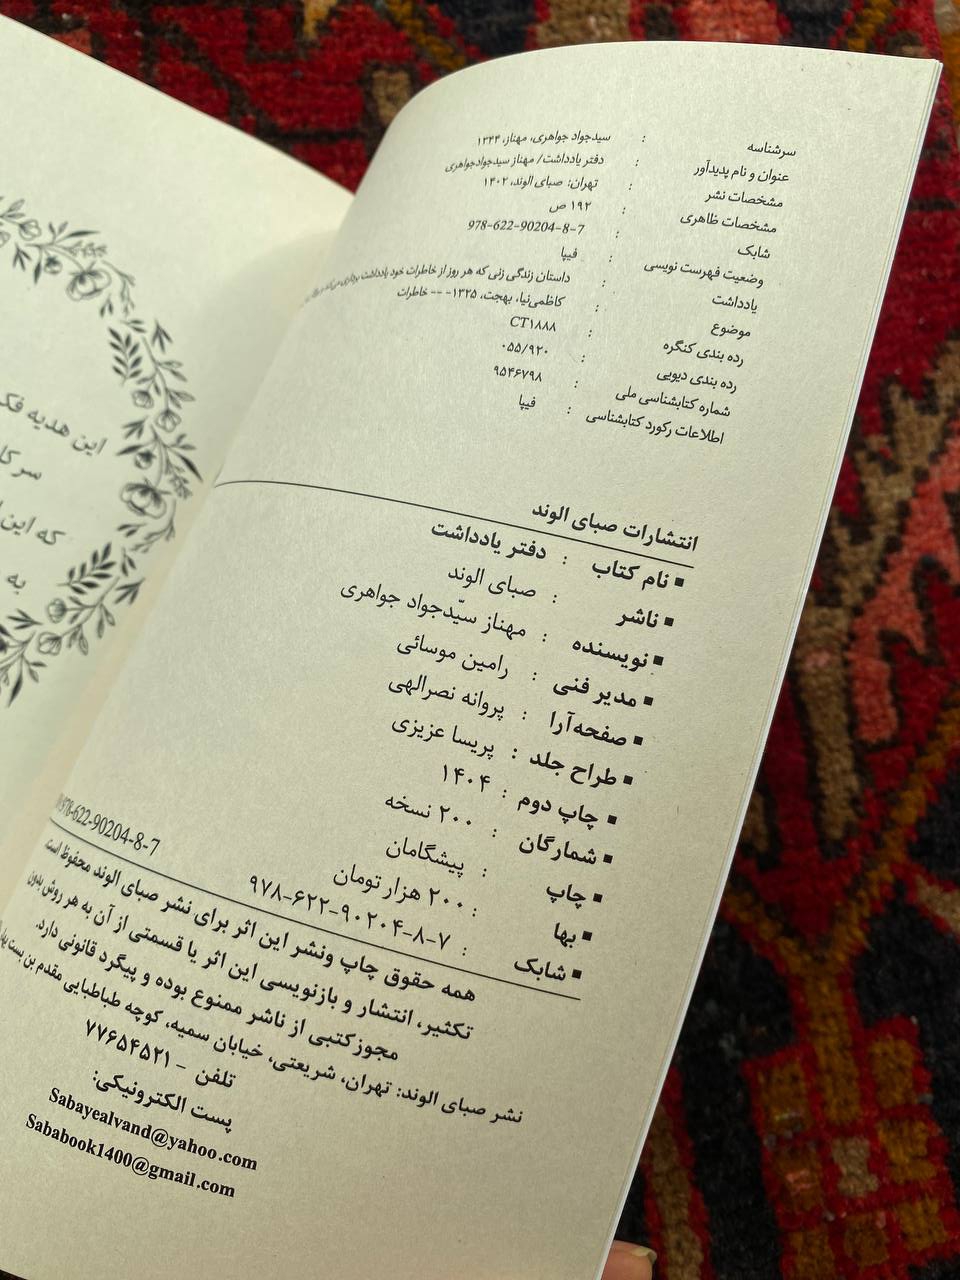 سرشناسه : سیدجواد جواهری، مهناز، ۱۳۴۴
عنوان و نام پدیدآور : دفتر یادداشت/ مهناز سیدجوادجواهری
مشخصات نشر : تهران: صبای الوند، ۱۴۰۲
مشخصات ظاهری : ۱۹۲ ص
شابک : 978-622-90204-8-7
وضعیت فهرست نویسی : فیپا
یادداشت : داستان زندگی زنی که هر روز از خاطرات خود یادداشت برداری
موضوع : کاظمی‌نیا، بهجت، ۱۳۲۵- -- خاطرات
رده بندی کنگره : CT۱۸۸۸
رده بندی دیویی : ۰۵۵/۹۲۰
شماره کتابشناسی ملی : ۹۵۴۶۷۹۸
اطلاعات رکورد کتابشناسی : فیپا
انتشارات صبای الوند
▪ نام کتاب : دفتر یادداشت
▪ ناشر : صبای الوند
▪ نویسنده : مهناز سیّدجواد جواهری
▪ مدیر فنی : رامین موسائی
▪ صفحه‌آرا : پروانه نصرالهی
▪ طراح جلد : پریسا عزیزی
▪ چاپ دوم : ۱۴۰۴
▪ شمارگان : ۲۰۰ نسخه
▪ چاپ : پیشگامان
▪ بها : ۲۰۰ هزار تومان
▪ شابک : ۹۷۸-۶۲۲-۹۰۲۰۴-۸-۷
978-622-90204-8-7
همه حقوق چاپ ونشر این اثر برای نشر صبای الوند محفوظ است.
تکثیر، انتشار و بازنویسی این اثر یا قسمتی از آن به هر روش بدون
مجوزکتبی از ناشر ممنوع بوده و پیگرد قانونی دارد.
نشر صبای الوند: تهران، شریعتی، خیابان سمیه، کوچه طباطبایی مقدم بن بست
تلفن - ۷۷۶۵۴۵۲۱
پست الکترونیکی:
Sabayealvand@yahoo.com
Sababook1400@gmail.com
این هدیه
که این
به